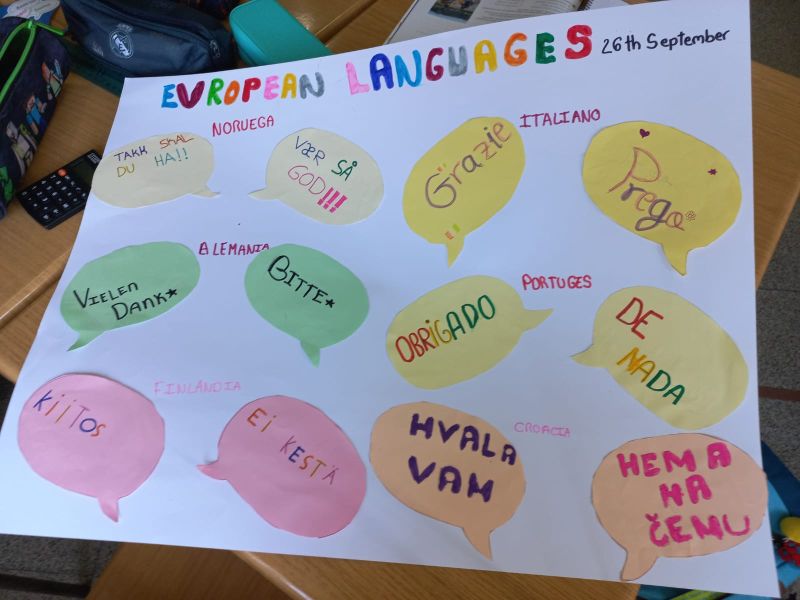 EVROPEAN LANGUAGES 26th September
NORUEGA
TAKK SKAL
DU HA!!
VÆR SÅ
GOD!!!
ITALIANO
Grazie
Prego
ALEMANIA
VIELEN
DANK
BITTE
PORTUGES
OBRIGADO
DE
NADA
FINLANDIA
KiiTOS
Ei KESTÄ
CROACIA
HVALA
VAM
HEMA
NA
ČEMU